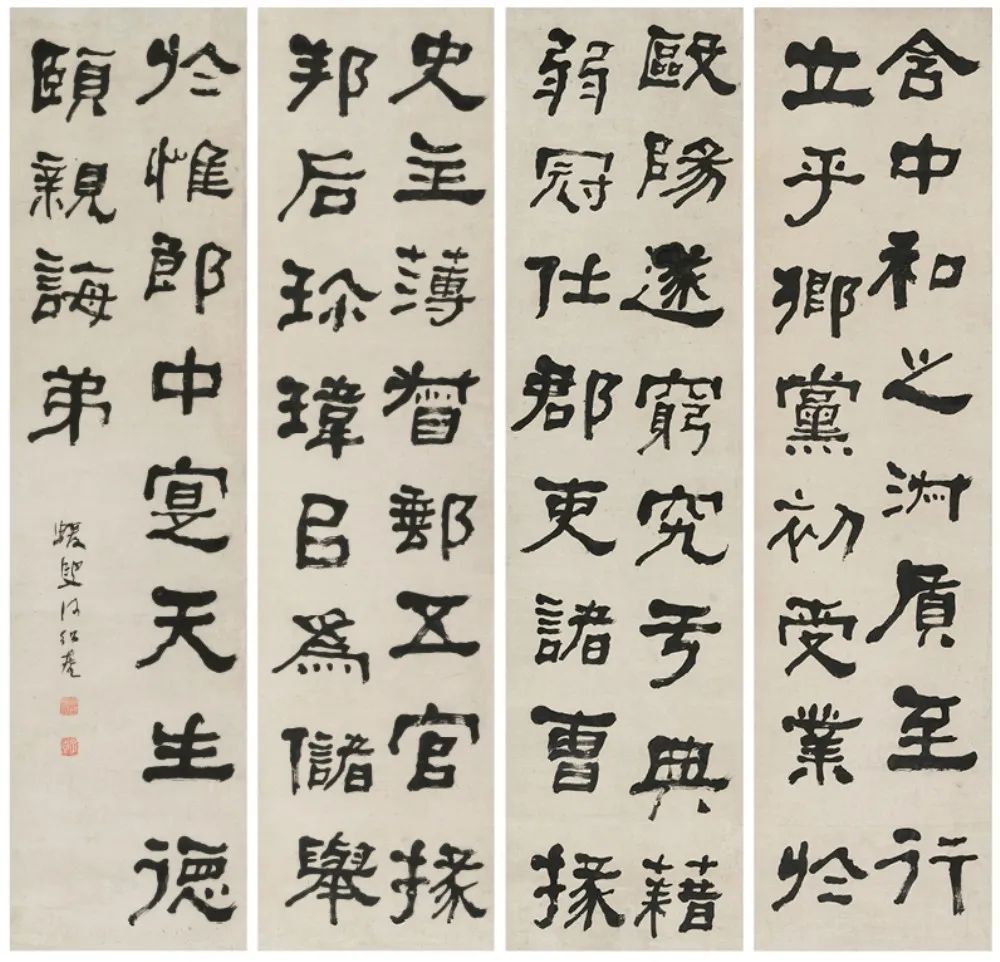 含中和之淑質至行
立乎鄉黨初受業於
歐陽遂窮究于典藉
弱冠仕郡吏諸曹掾
史主薄督郵五官掾
邦后珍瑋以爲儲舉
於惟郎中寔天生德
頤親誨弟
蝯叟何紹基